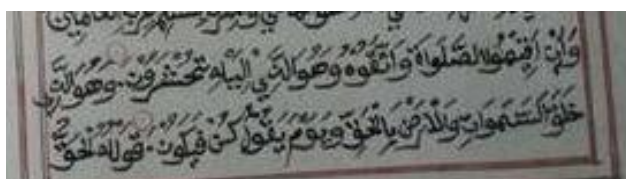 لرب العالمين
وَأَنْ أَقِيمُوا الصَّلَوٰةَ وَاتَّقُوهُ وَهُوَ الَّذِي إِلَيْهِ تُحْشَرُونَ وَهُوَ الَّذِي
خَلَقَ السَّمَوَاتِ وَالْأَرْضَ بِالْحَقِّ وَيَوْمَ يَقُولُ كُنْ فَيَكُونُ قَوْلُهُ الْحَقُّ